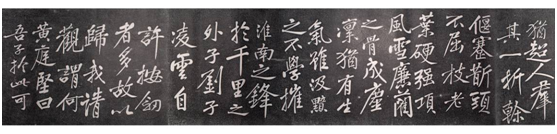 猶超人羣
其一折榦
偃蹇斮頭
不屈枝老
葉硬強項
風雪廉藺
之骨成塵
凛猶有生
氣雖汲黯
之不學摧
淮南之鋒
於千里之
外子劉子
凌雲自
許按劒
者多故以
歸我請
觀謂何
黃庭堅曰
吾子於此可